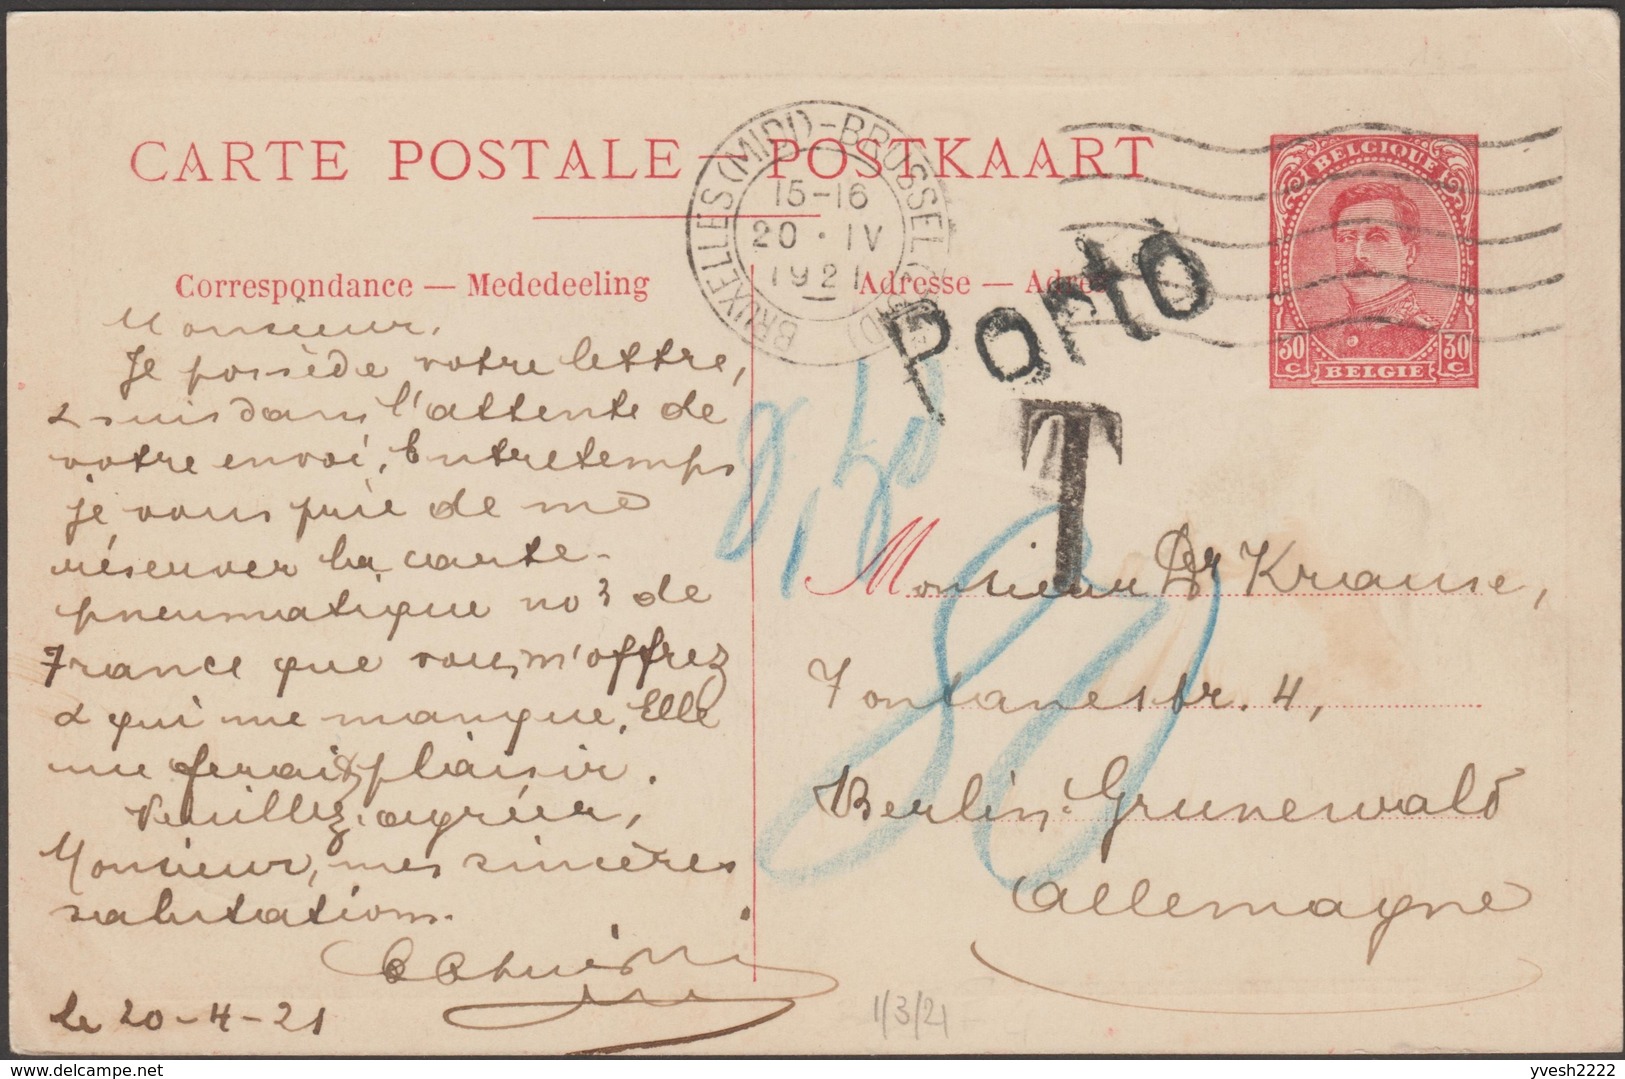 CARTE POSTALE — POSTKAART
BRUXELLES (MIDI) - BRUSSEL
15-16
20 · IV
1921
BELGIQUE
30 c
30 c
BELGIE
Correspondance — Mededeeling
Adresse — Adres
Porto
T
0,50
80
Monsieur,
Je possède votre lettre,
& suis dans l'attente de
votre envoi. Entretemps
je vous prie de me
réserver la carte-
pneumatique no 3 de
France que vous m'offrez
& qui me manque. Elle
me ferait plaisir.
Veuillez agréer,
Monsieur, mes sincères
salutations.
le 20-4-21
Monsieur Dr Krause,
Fontanestr. 4,
Berlin-Grunewald
Allemagne
1/3/21
yvesh2222
yvesh2222